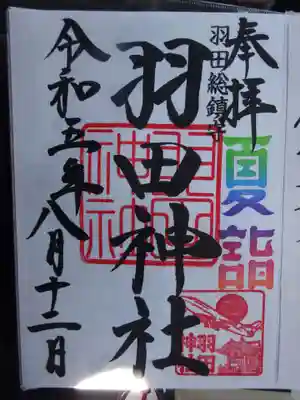 奉拝
羽田総鎮守
夏詣
羽田神社
羽田
神社
令和五年八月十二日